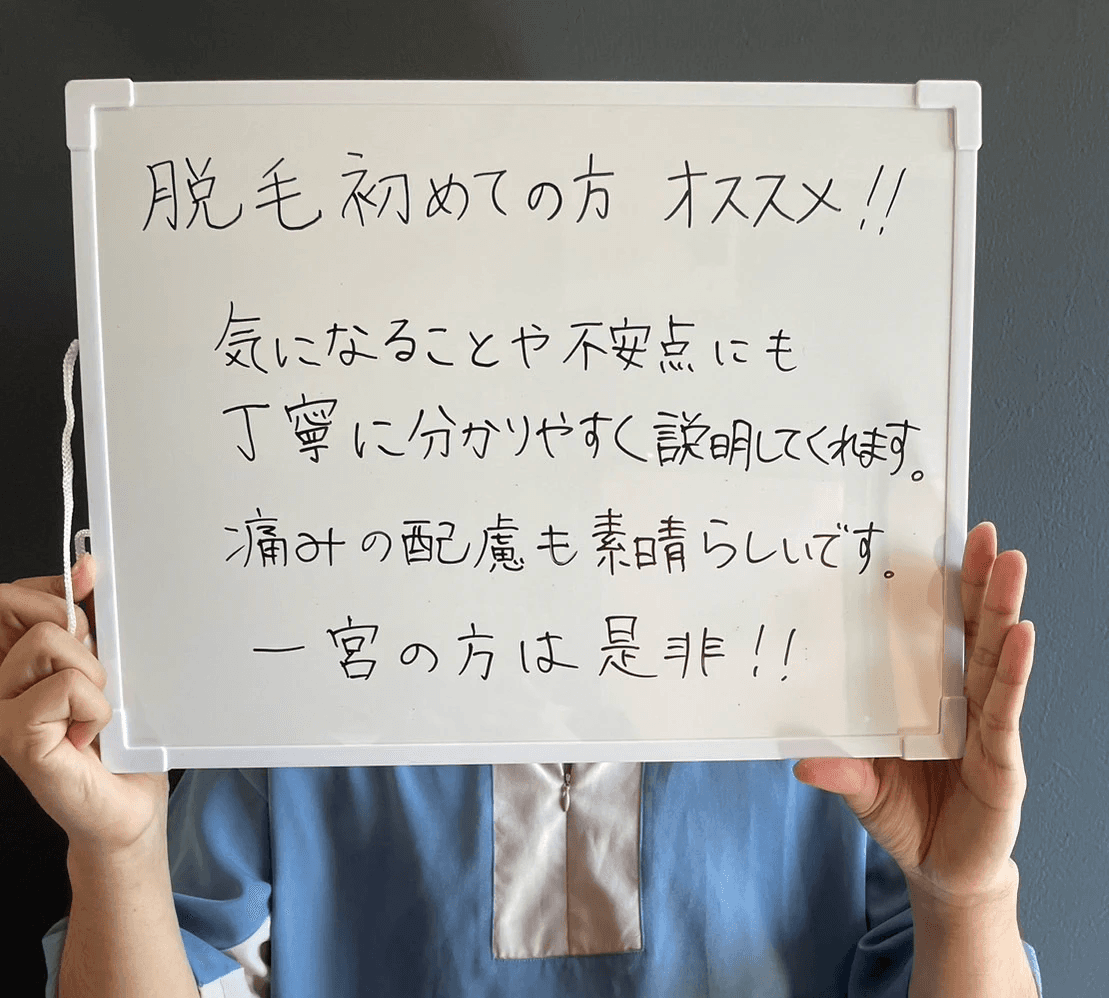 脱毛初めての方 オススメ!!
気になることや不安点にも
丁寧に分かりやすく説明してくれます。
痛みの配慮も素晴らしいです。
一宮の方は是非!!